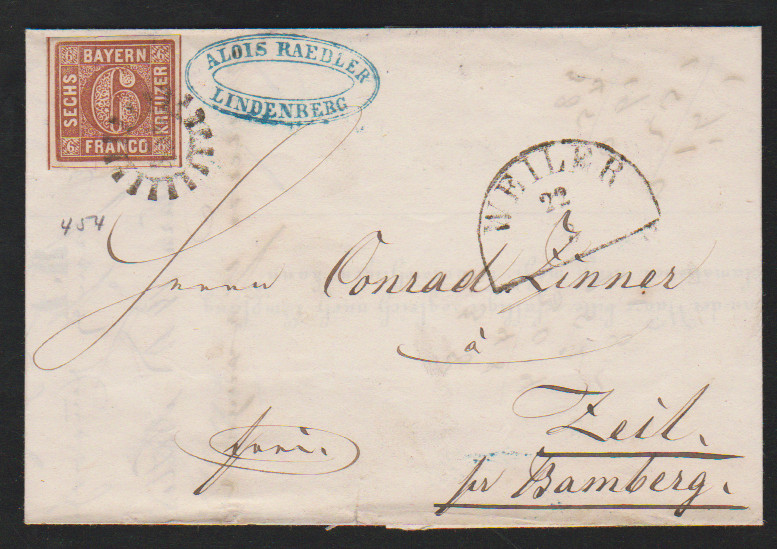 BAYERN
SECHS 6 KREUZER
FRANCO
6 6 6 6
ALOIS RAEDLER
LINDENBERG
WEILER
22
454
Herrn Conrad Zinner
à
Zeil.
frei.
pr Bamberg.